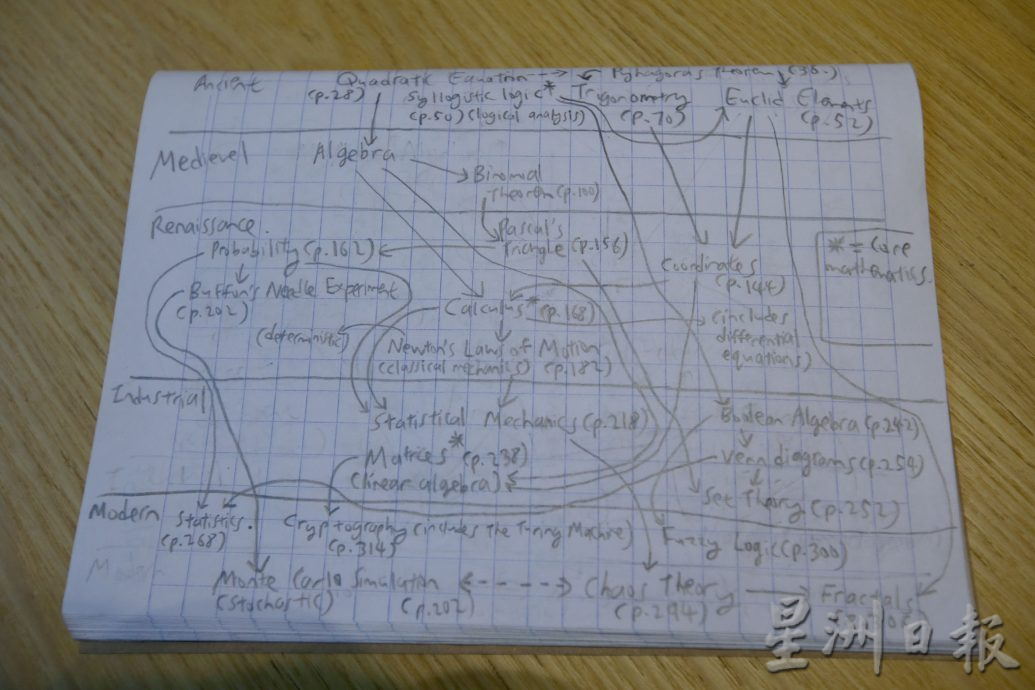 Ancient
Quadratic Equation
Pythagoras Theorem (36.)
(p.28)
Syllogistic logic*
Trigonometry
Euclid Elements
(p.50) (logical analysis)
(p.70)
(p.52)
Medievel
Algebra
Binomial
Theorem (p.100)
Renaissance.
Pascal's
Probability (p.162)
Triangle (p.156)
* = Core
mathematics.
Coordinates
(p.144)
Buffon's Needle Experiment
(p.202)
Calculus* (p.168)
(includes
differential
equations)
(deterministic)
Newton's Laws of Motion
(classical mechanics) (p.182)
Industrial
Statistical Mechanics (p.218)
Boolean Algebra (p.242)
Matrices* (p.238)
Venn diagrams (p.254)
(linear algebra)
Set Theory (p.252)
Modern
Statistics.
(p.268)
Cryptography (includes the Turing Machine)
(p.314)
Fuzzy Logic (p.300)
Monte Carlo Simulation
Chaos Theory
Fractals
(stochastic)
(p.202)
(p.294)
星洲日報